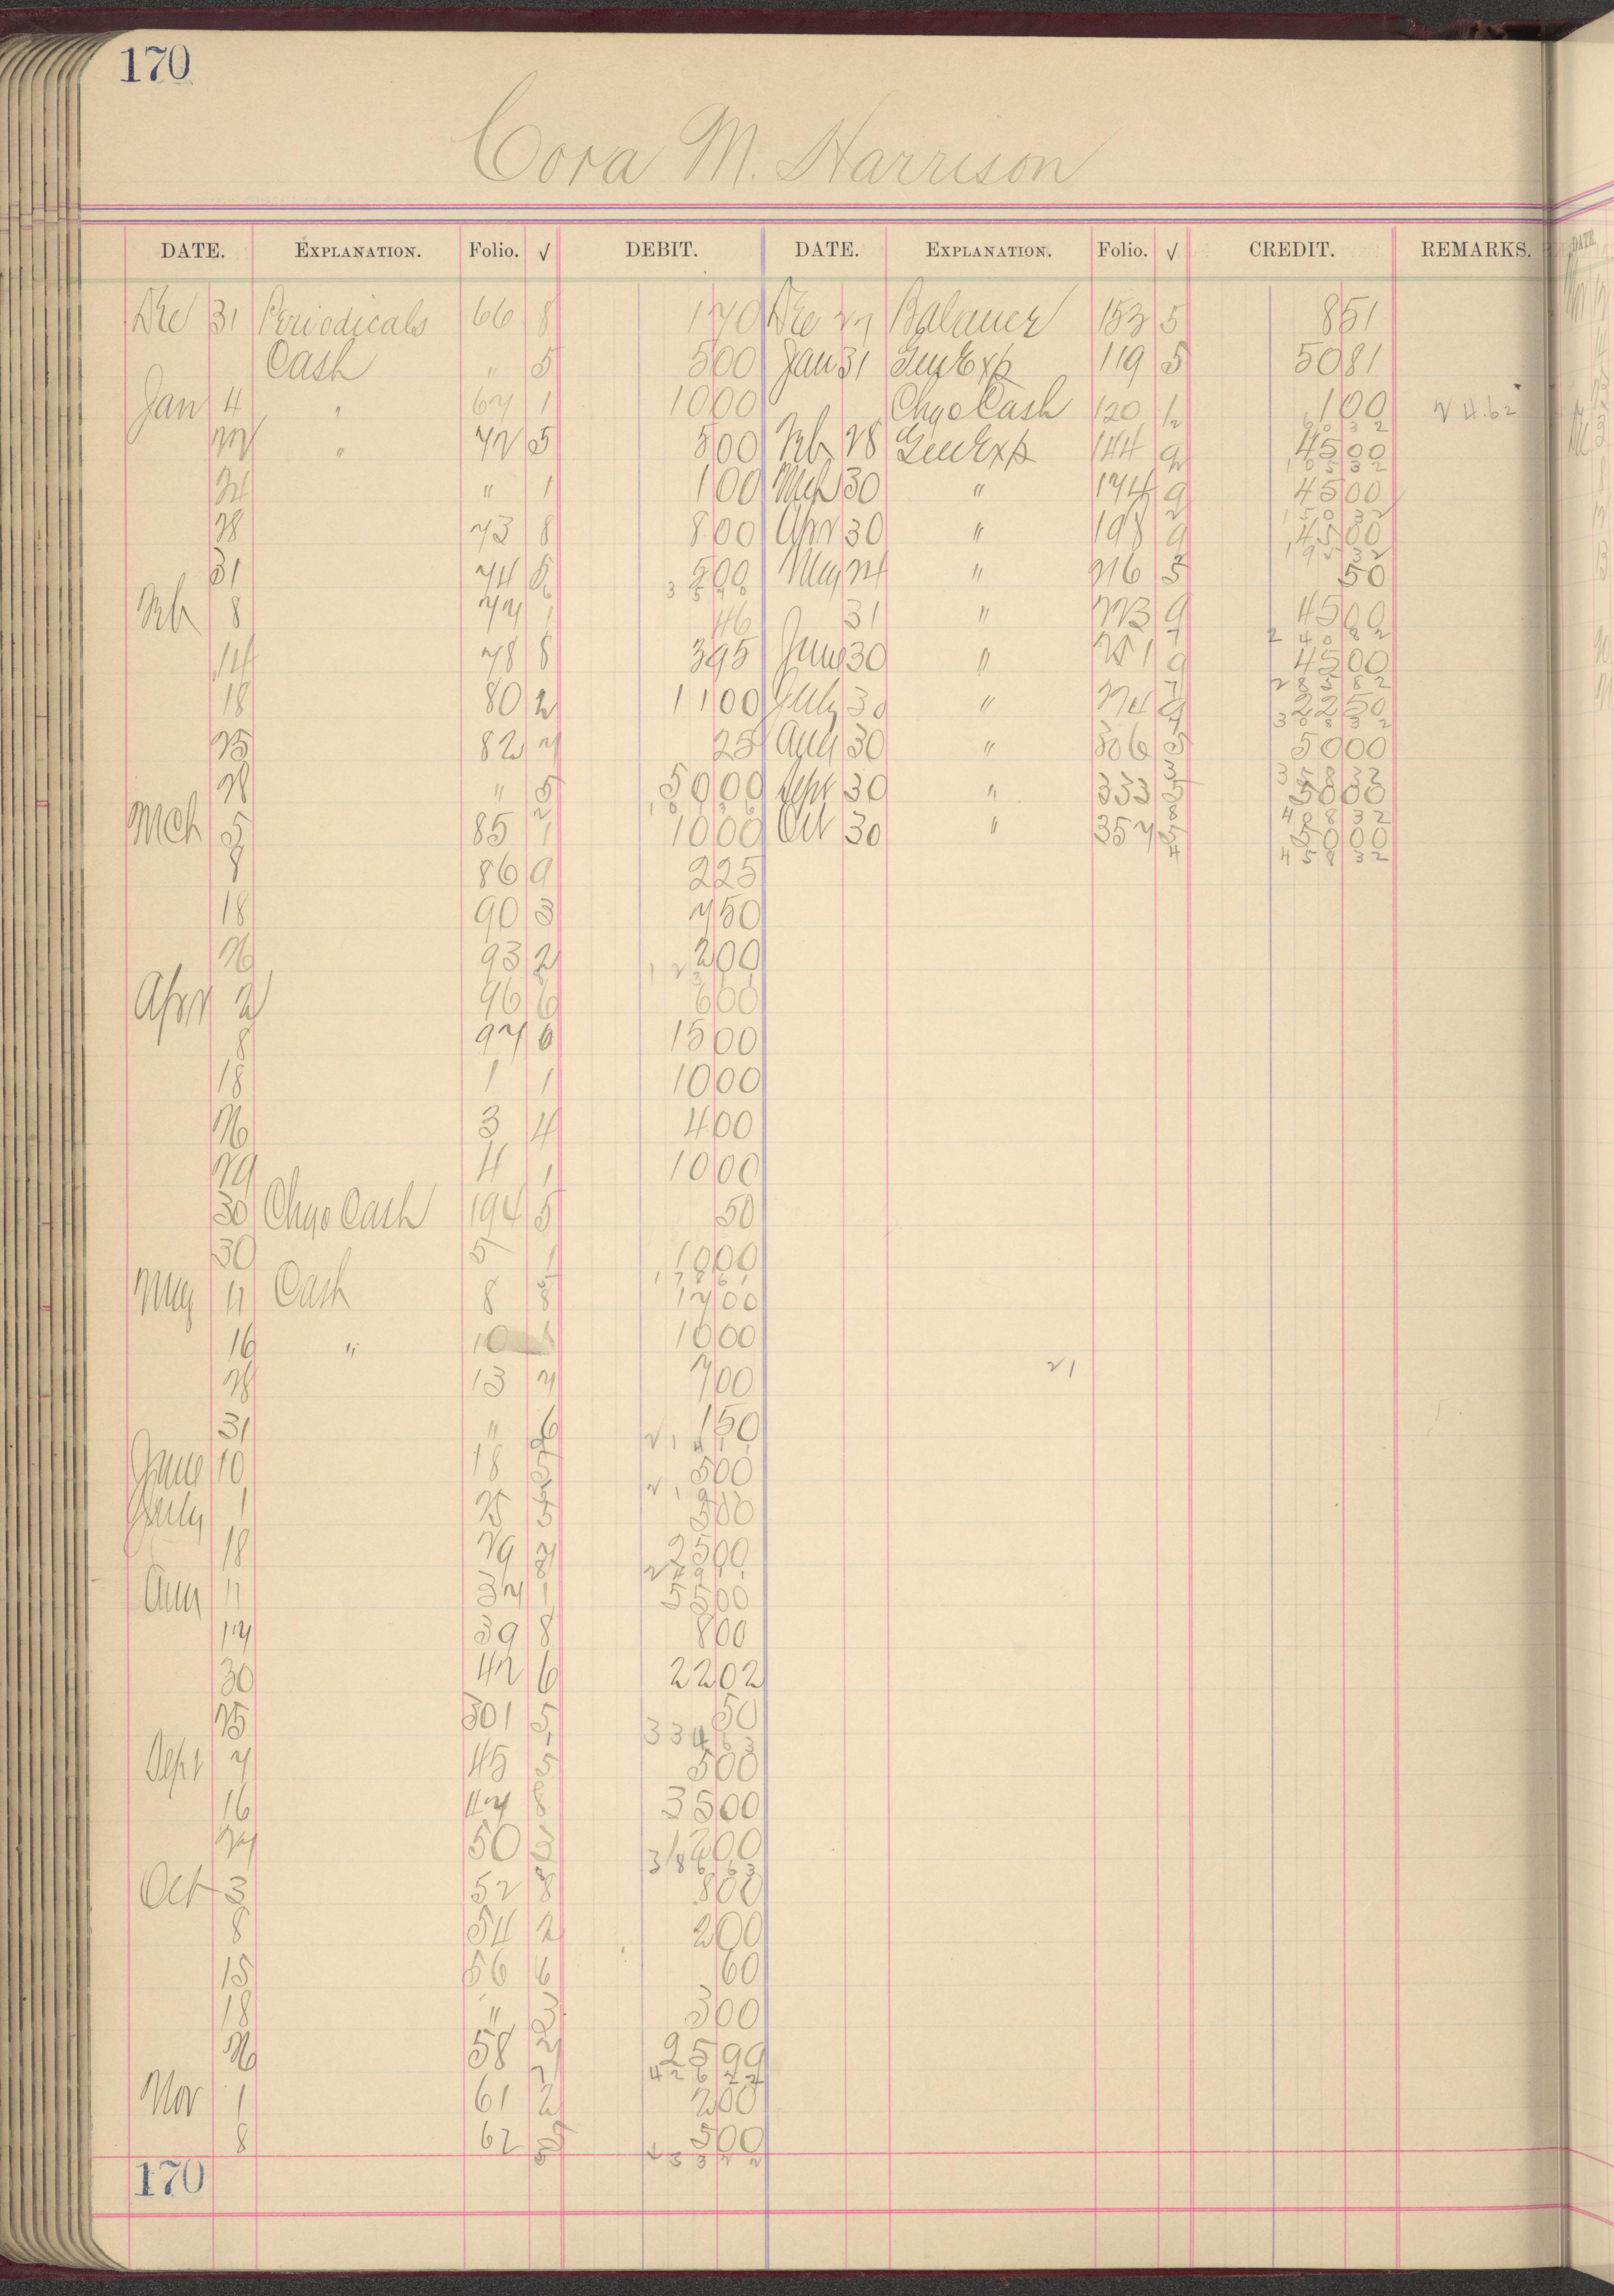 170
Cora M. Harrison
DATE. EXPLANATION. Folio. √ DEBIT. DATE. EXPLANATION. Folio. √ CREDIT. REMARKS.
Dec 31 Periodicals 66 8 1 70 Dec 27 Balance 153 5 8 51
Cash " 5 5 00 Jan 31 Gen Exp 119 5 50 81
Jan 4 " 67 1 10 00 Chgo Cash 120 1 00 2 4.62
22 " 72 5 5 00 Feb 28 Gen Exp 144 9 45 00
24 " 1 1 00 Mch 30 " 174 9 45 00
28 73 8 8 00 Apr 30 " 198 9 45 00
31 74 5 5 00 May 24 " 216 5 50
Feb 8 77 1 46 31 " 223 9 45 00
14 78 8 3 95 June 30 " 251 9 45 00
18 80 2 11 00 July 30 " 274 9 22 50
25 82 7 25 Aug 30 " 306 5 50 00
28 " 5 50 00 Sept 30 " 333 5 50 00
Mch 5 85 1 10 00 Oct 30 " 357 5 50 00
8 86 9 2 25
18 90 3 7 50
26 93 2 2 00
Apr 2 96 6 6 00
8 97 6 15 00
18 1 1 10 00
26 3 4 4 00
29 4 1 10 00
30 Chgo Cash 194 5 50
30 5 1 10 00
May 11 Cash 8 8 17 00
16 " 10 10 00
28 13 7 7 00
21
31 " 6 1 50
June 10 18 5 5 00
July 1 25 5 00
18 29 7 25 00
Aug 11 37 1 55 00
17 39 8 8 00
30 42 6 22 02
25 301 5 50
334 63
Sept 7 45 5 5 00
16 47 8 35 00
27 50 2 00
318 6 63
Oct 3 52 8 8 00
8 54 2 2 00
15 56 6 60
18 " 3 3 00
26 58 7 25 99
426 22
Nov 1 61 2 2 00
8 62 5 5 00
170